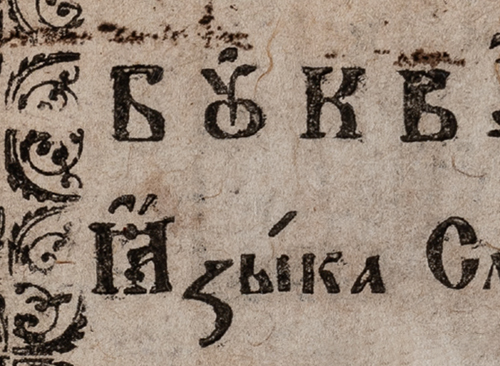 БꙊ́КВ
Ꙗ҆зы́ка Сл